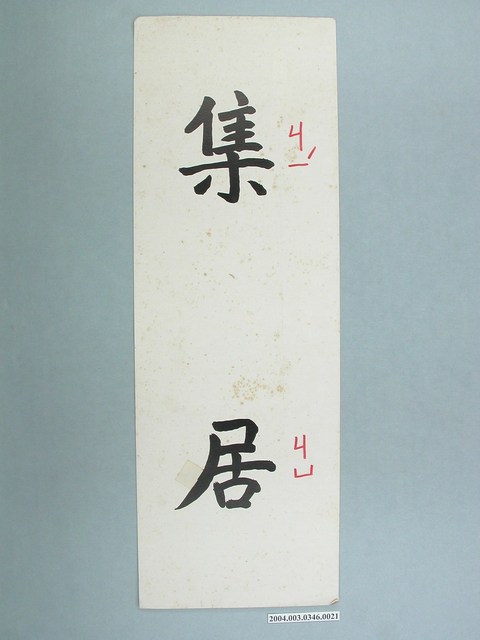 集 ㄐㄧˊ
居 ㄐㄩ
2004.003.0346.0021